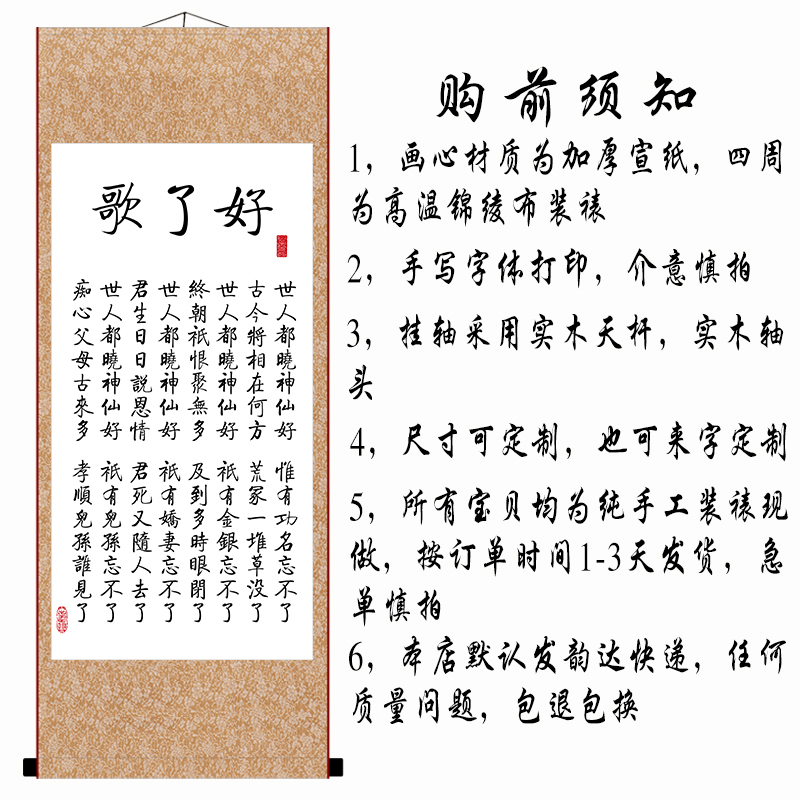 好了歌
世人都曉神仙好 惟有功名忘不了
古今將相在何方 荒冢一堆草没了
世人都曉神仙好 祇有金銀忘不了
終朝祇恨聚無多 及到多時眼閉了
世人都曉神仙好 祇有嬌妻忘不了
君生日日説恩情 君死又隨人去了
世人都曉神仙好 祇有兒孫忘不了
痴心父母古來多 孝順兒孫誰見了
购前须知
1，画心材质为加厚宣纸，四周
为高温锦绫布装裱
2，手写字体打印，介意慎拍
3，挂轴采用实木天杆，实木轴
头
4，尺寸可定制，也可来字定制
5，所有宝贝均为纯手工装裱现
做，按订单时间1-3天发货，急
单慎拍
6，本店默认发韵达快递，任何
质量问题，包退包换